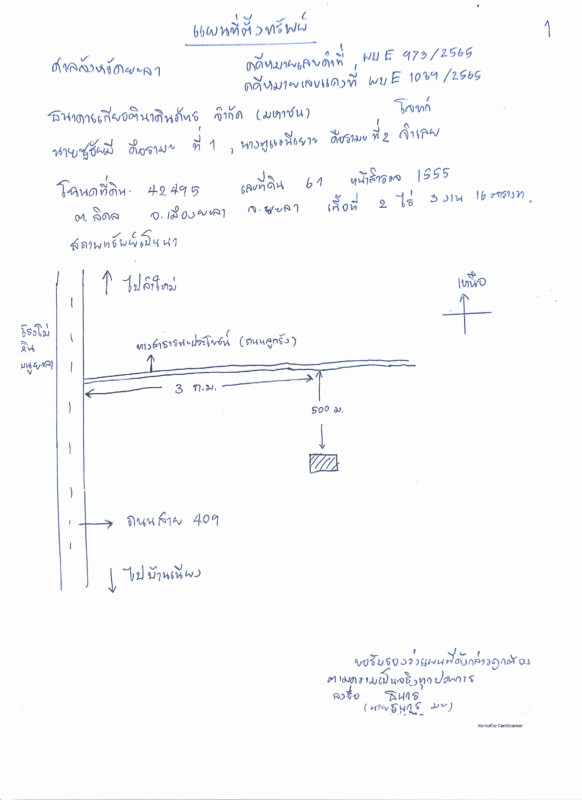 แผนที่ตั้งทรัพย์
1
ศาลจังหวัดยะลา
คดีหมายเลขดำที่ ผบE 973/2565
คดีหมายเลขแดงที่ ผบE 1039/2565
ธนาคารเกียรตินาคินภัทร จำกัด (มหาชน) โจทก์
ที่ 1 , ที่ 2 จำเลย
โฉนดที่ดิน 42495 เลขที่ดิน 61 หน้าสำรวจ 1555
ต.ลิดล อ.เมืองยะลา จ.ยะลา เนื้อที่ 2 ไร่ 3 งาน 16 ตารางวา
สภาพทรัพย์เป็นนา
ไปลำใหม่
เหนือ
โรงโม่
หิน
ทางสาธารณะประโยชน์ (ถนนลูกรัง)
3 ก.ม.
500 ม.
ถนนสาย 409
ไปบ้านเนียง
ขอรับรองว่าแผนที่ดังกล่าวถูกต้อง
ตามความเป็นจริงทุกประการ
ลงชื่อ
สแกนด้วย CamScanner